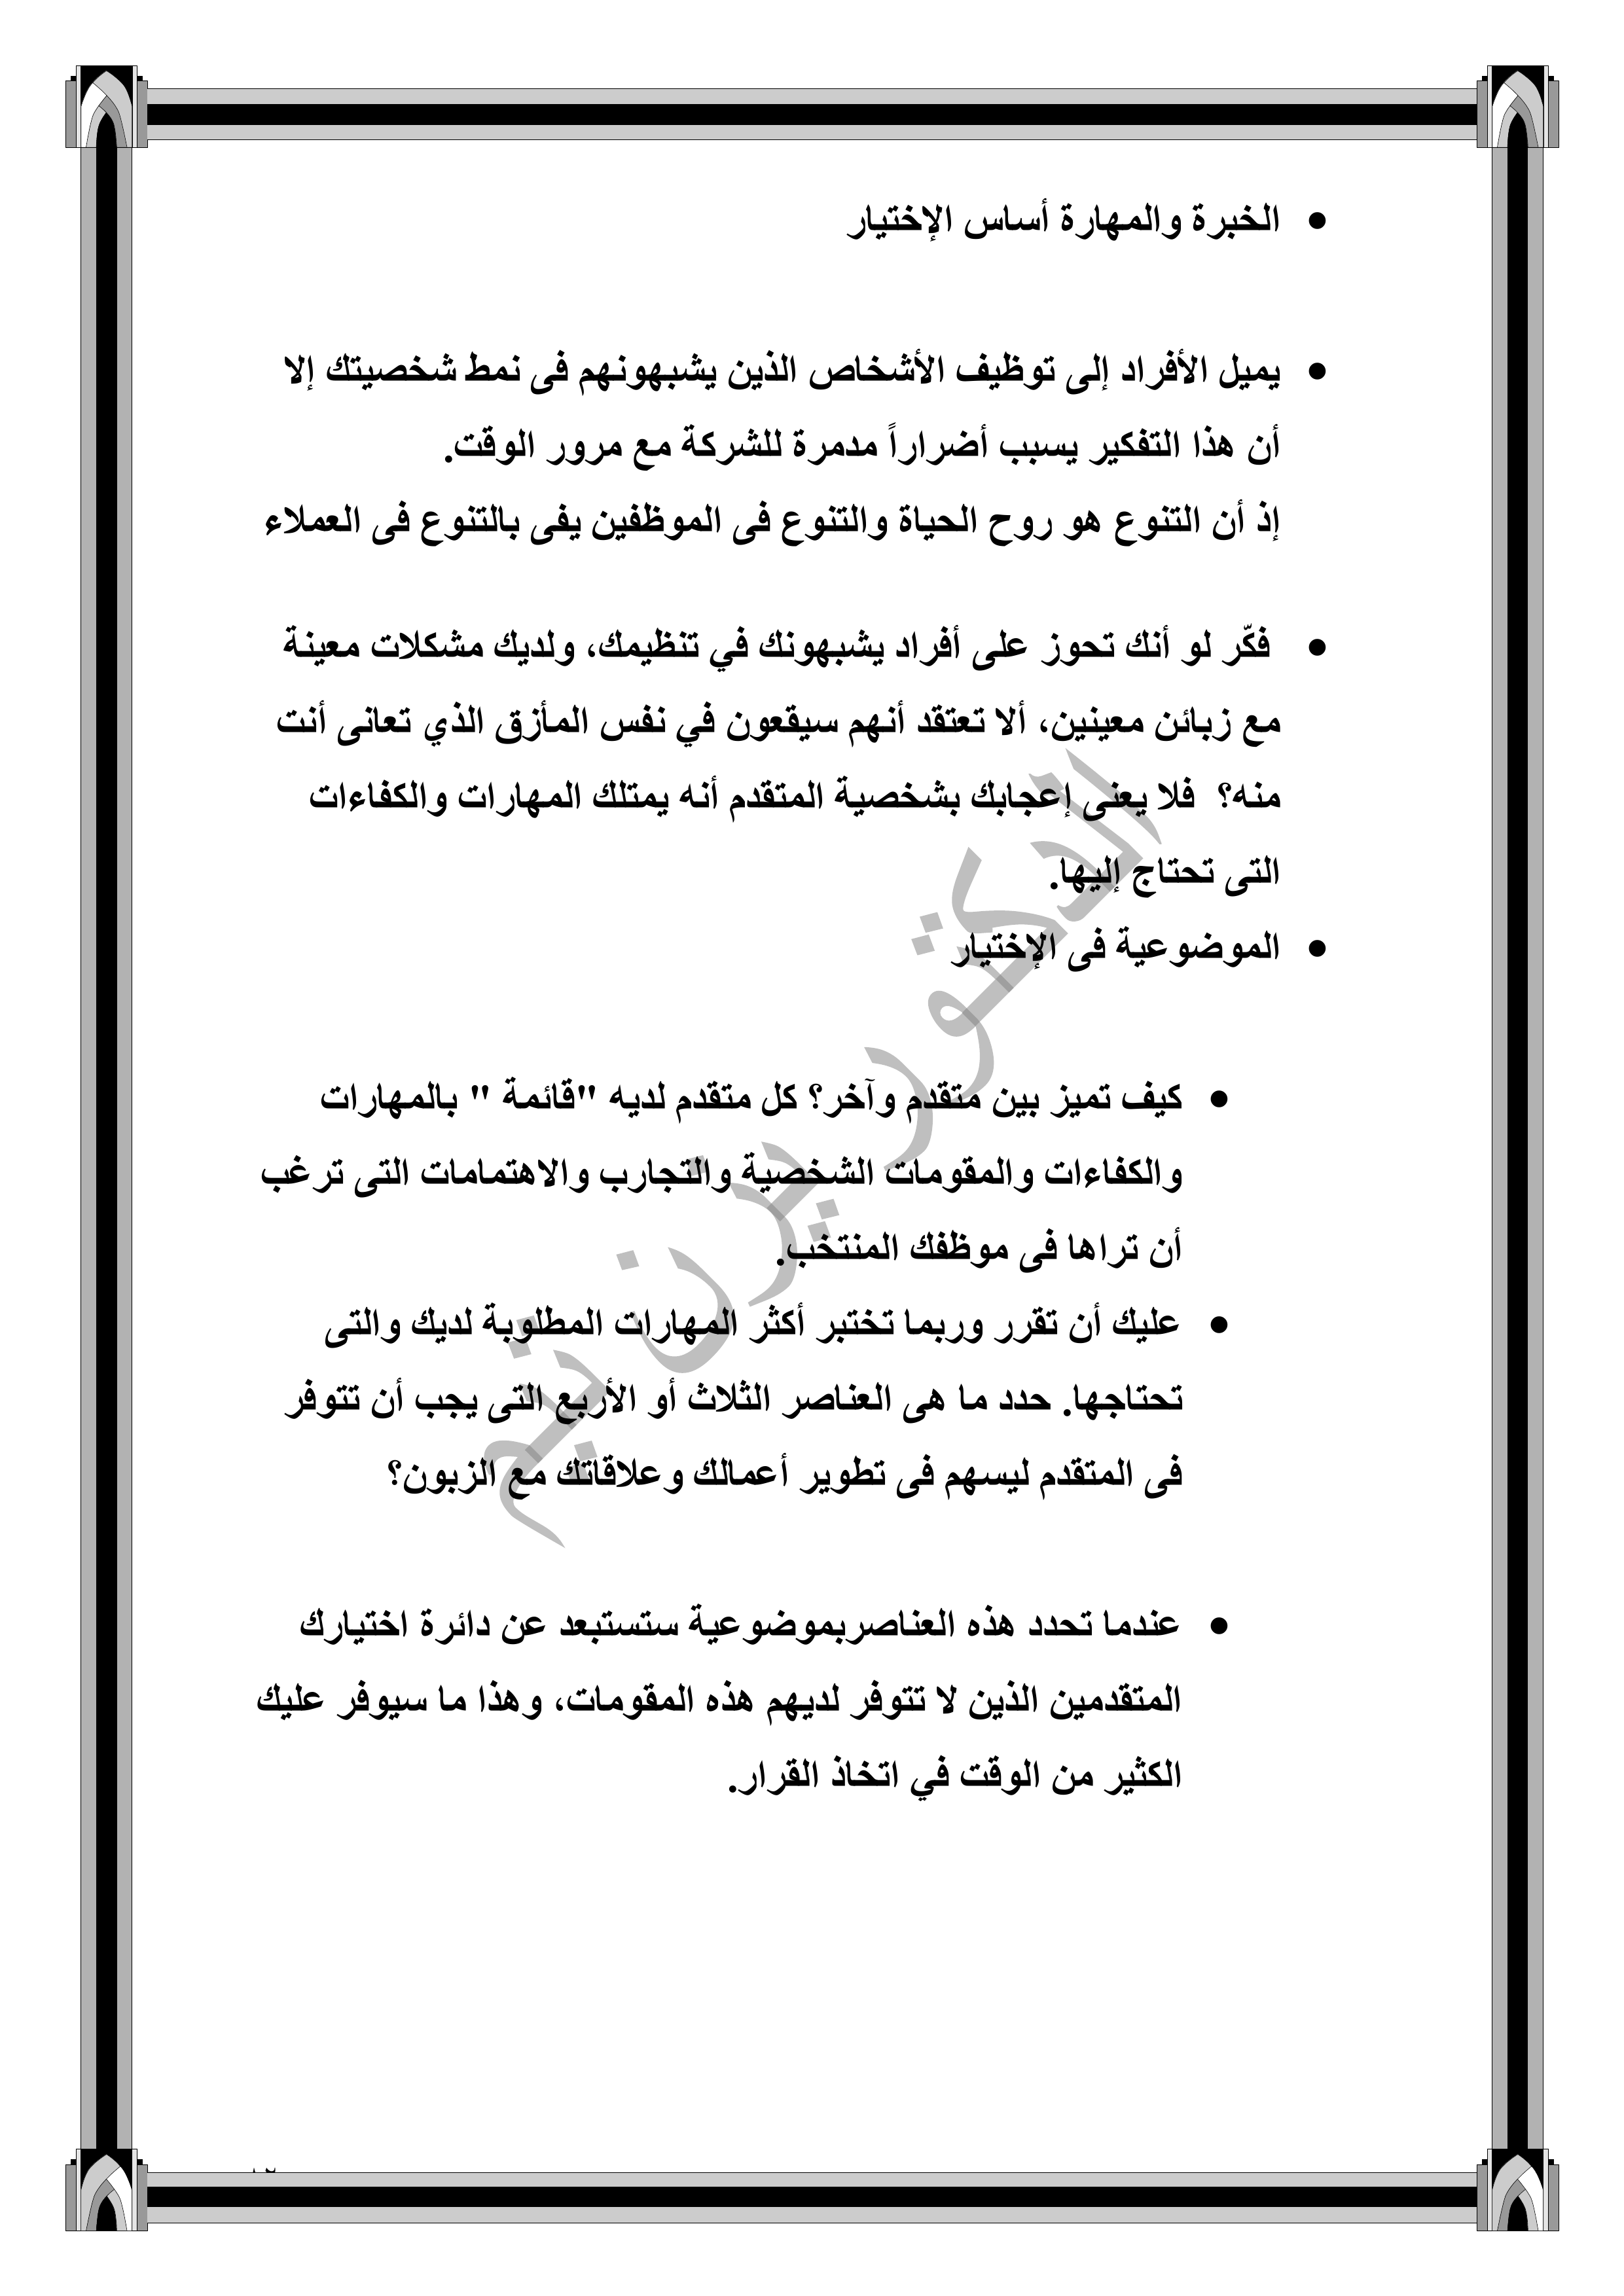 • الخبرة والمهارة أساس الإختيار
• يميل الأفراد إلى توظيف الأشخاص الذين يشبهونهم فى نمط شخصيتك إلا
أن هذا التفكير يسبب أضراراً مدمرة للشركة مع مرور الوقت.
إذ أن التنوع هو روح الحياة والتنوع فى الموظفين يفى بالتنوع فى العملاء
• فكّر لو أنك تحوز على أفراد يشبهونك في تنظيمك، ولديك مشكلات معينة
مع زبائن معينين، ألا تعتقد أنهم سيقعون في نفس المأزق الذي تعانى أنت
منه؟ فلا يعنى إعجابك بشخصية المتقدم أنه يمتلك المهارات والكفاءات
التى تحتاج إليها.
• الموضوعية فى الإختيار
• كيف تميز بين متقدم وآخر؟ كل متقدم لديه "قائمة " بالمهارات
والكفاءات والمقومات الشخصية والتجارب والاهتمامات التى ترغب
أن تراها فى موظفك المنتخب.
• عليك أن تقرر وربما تختبر أكثر المهارات المطلوبة لديك والتى
تحتاجها. حدد ما هى العناصر الثلاث أو الأربع التى يجب أن تتوفر
فى المتقدم ليسهم فى تطوير أعمالك وعلاقاتك مع الزبون؟
• عندما تحدد هذه العناصربموضوعية ستستبعد عن دائرة اختيارك
المتقدمين الذين لا تتوفر لديهم هذه المقومات، وهذا ما سيوفر عليك
الكثير من الوقت في اتخاذ القرار.
الدكتور